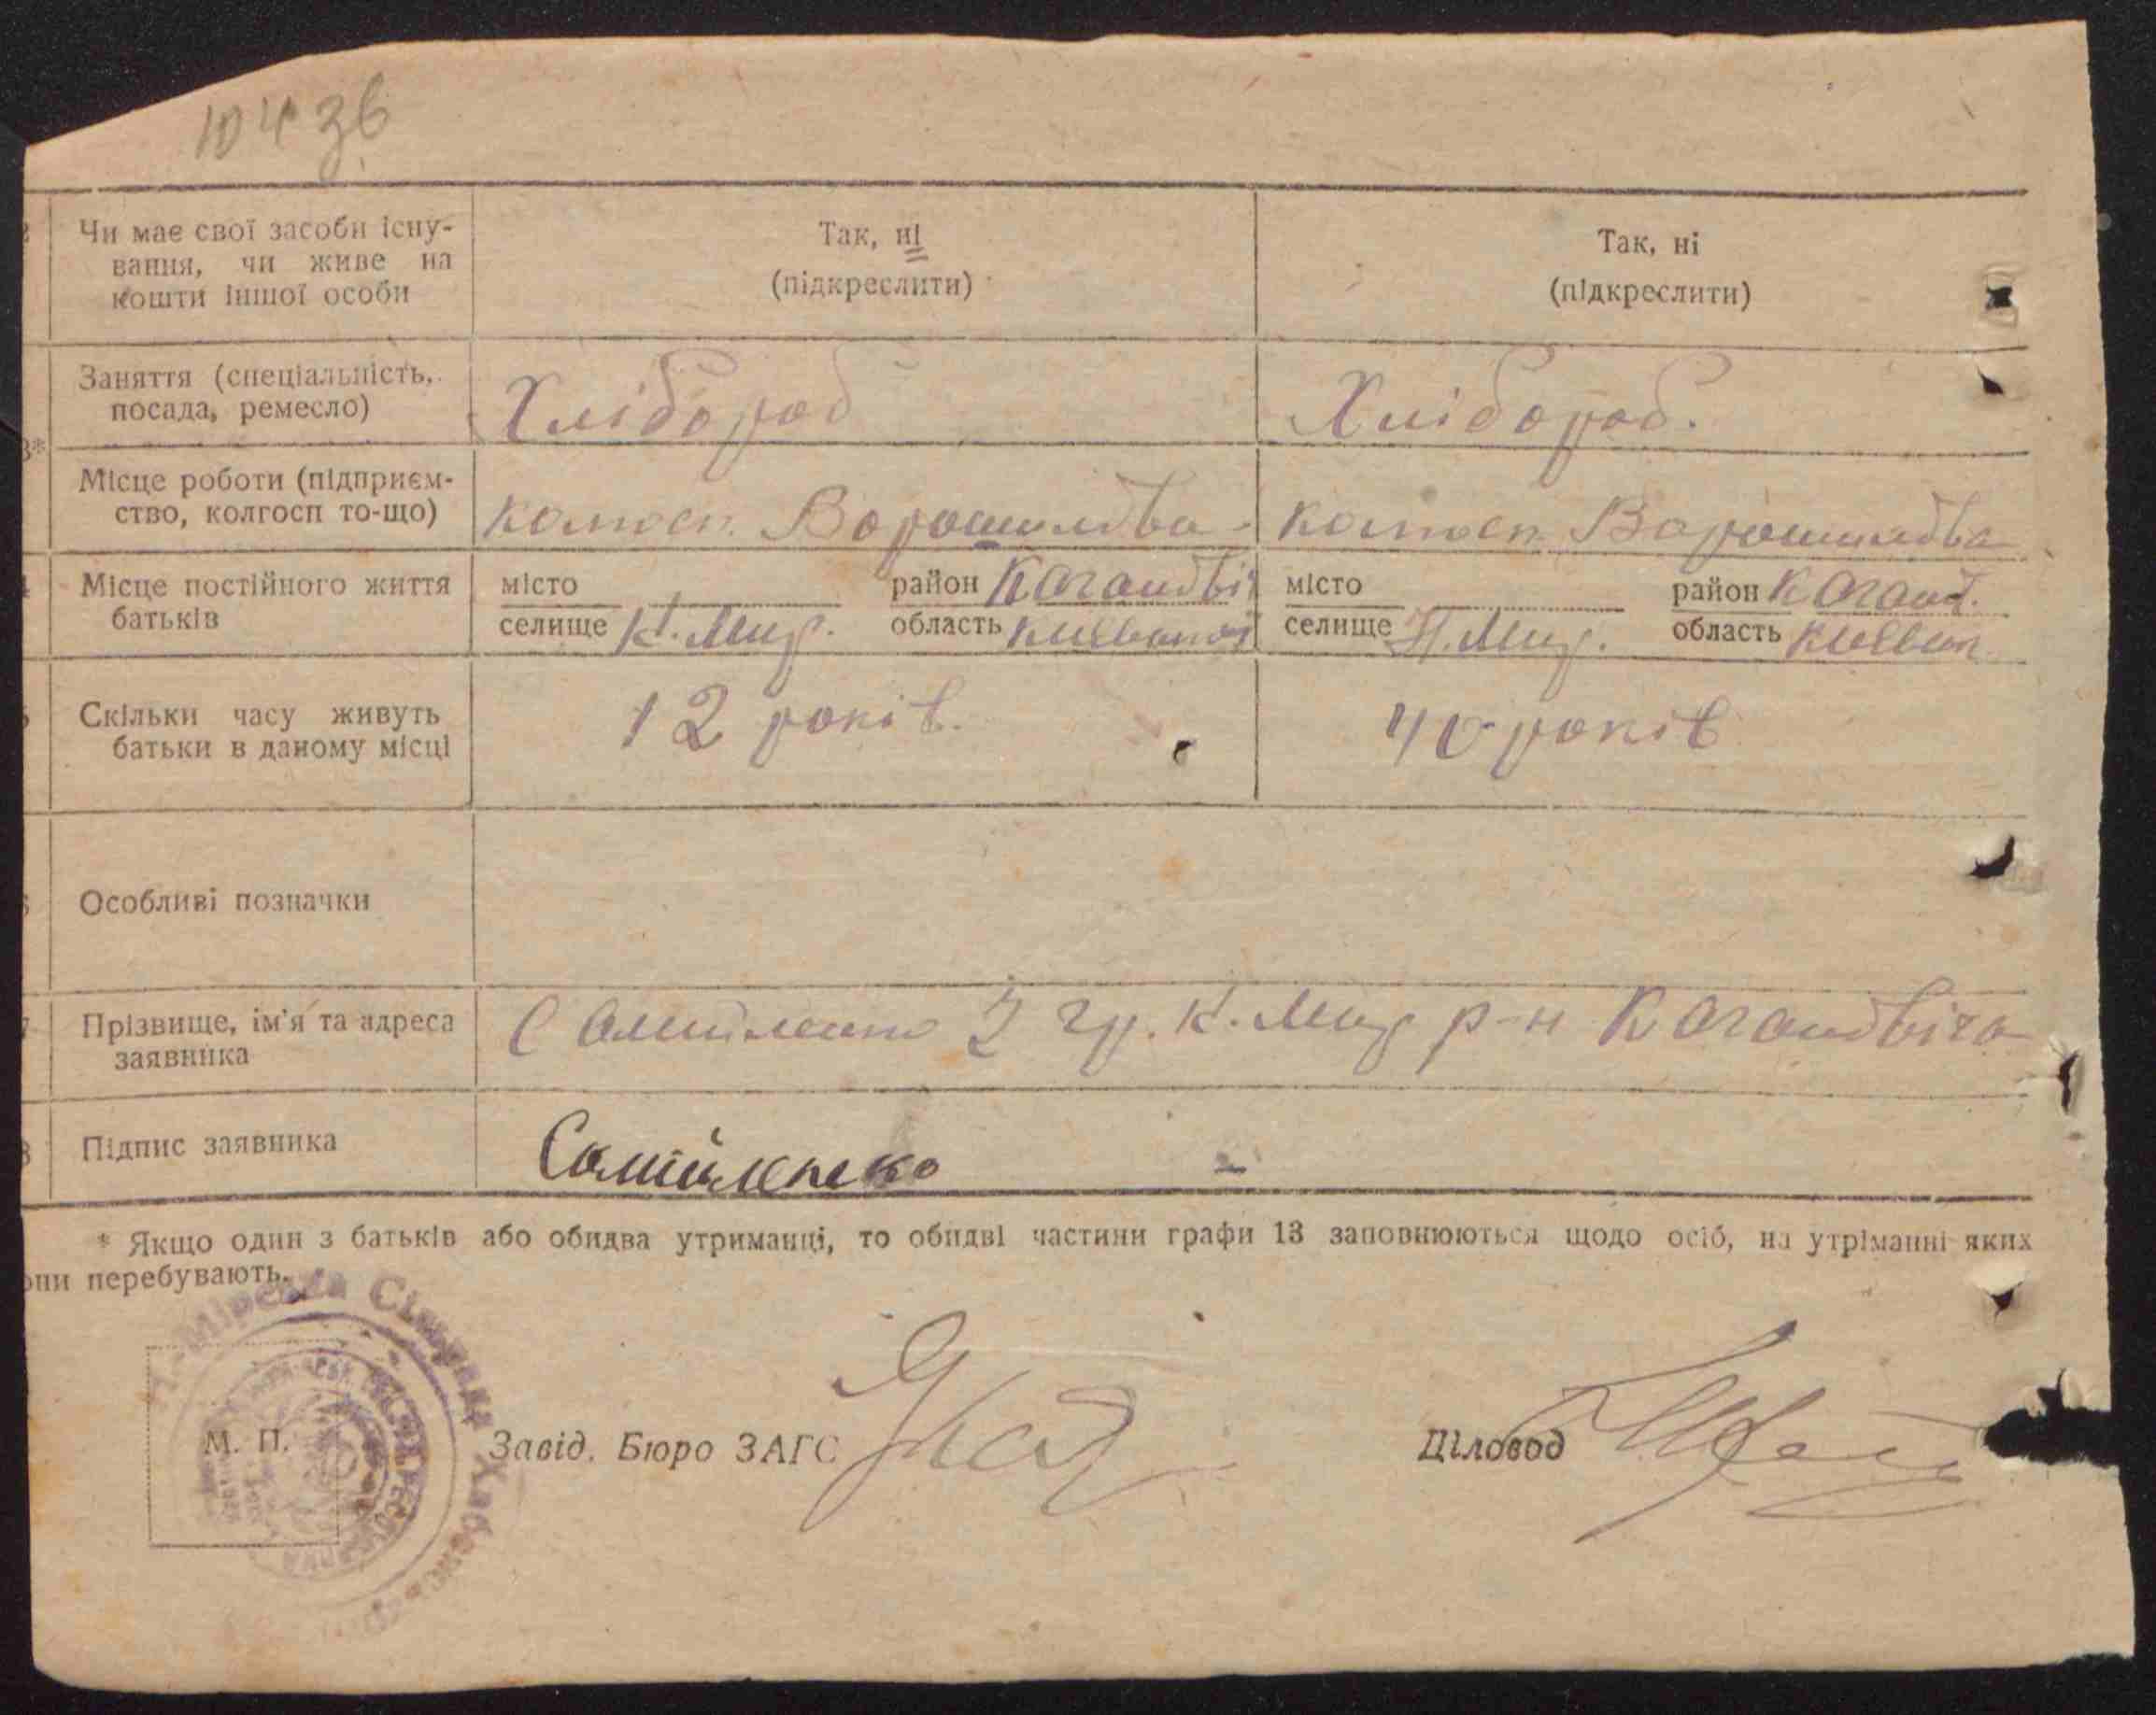 10436
Чи має свої засоби існу-
вання, чи живе на
кошти іншої особи
Так, ні
(підкреслити)
Так, ні
(підкреслити)
Заняття (спеціальність,
посада, ремесло)
Хлібороб
Хлібороб.
3*
Місце роботи (підприєм-
ство, колгосп то-що)
колгосп. Ворошилова
колгосп Ворошилова
Місце постійного життя
батьків
місто
селище К. Мир.
район Кагановіч
область Киевской
місто
селище Н. Мир.
район Каган.
область
Скільки часу живуть
батьки в даному місці
12 років.
40 років
Особливі позначки
Прізвище, ім'я та адреса
заявника
Самійленко гр. К. Мир р-н Кагановіча
Підпис заявника
Самійленко
* Якщо один з батьків або обидва утриманці, то обидві частини графи 13 заповнюються щодо осіб, на утріманні яких
они перебувають.
М. П.
Завід. Бюро ЗАГС
Діловод